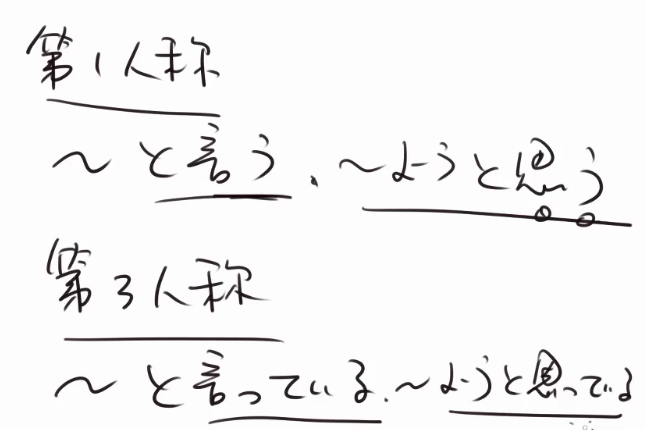 第1人称
～と言う、～ようと思う
第3人称
～と言っている、～ようと思っている